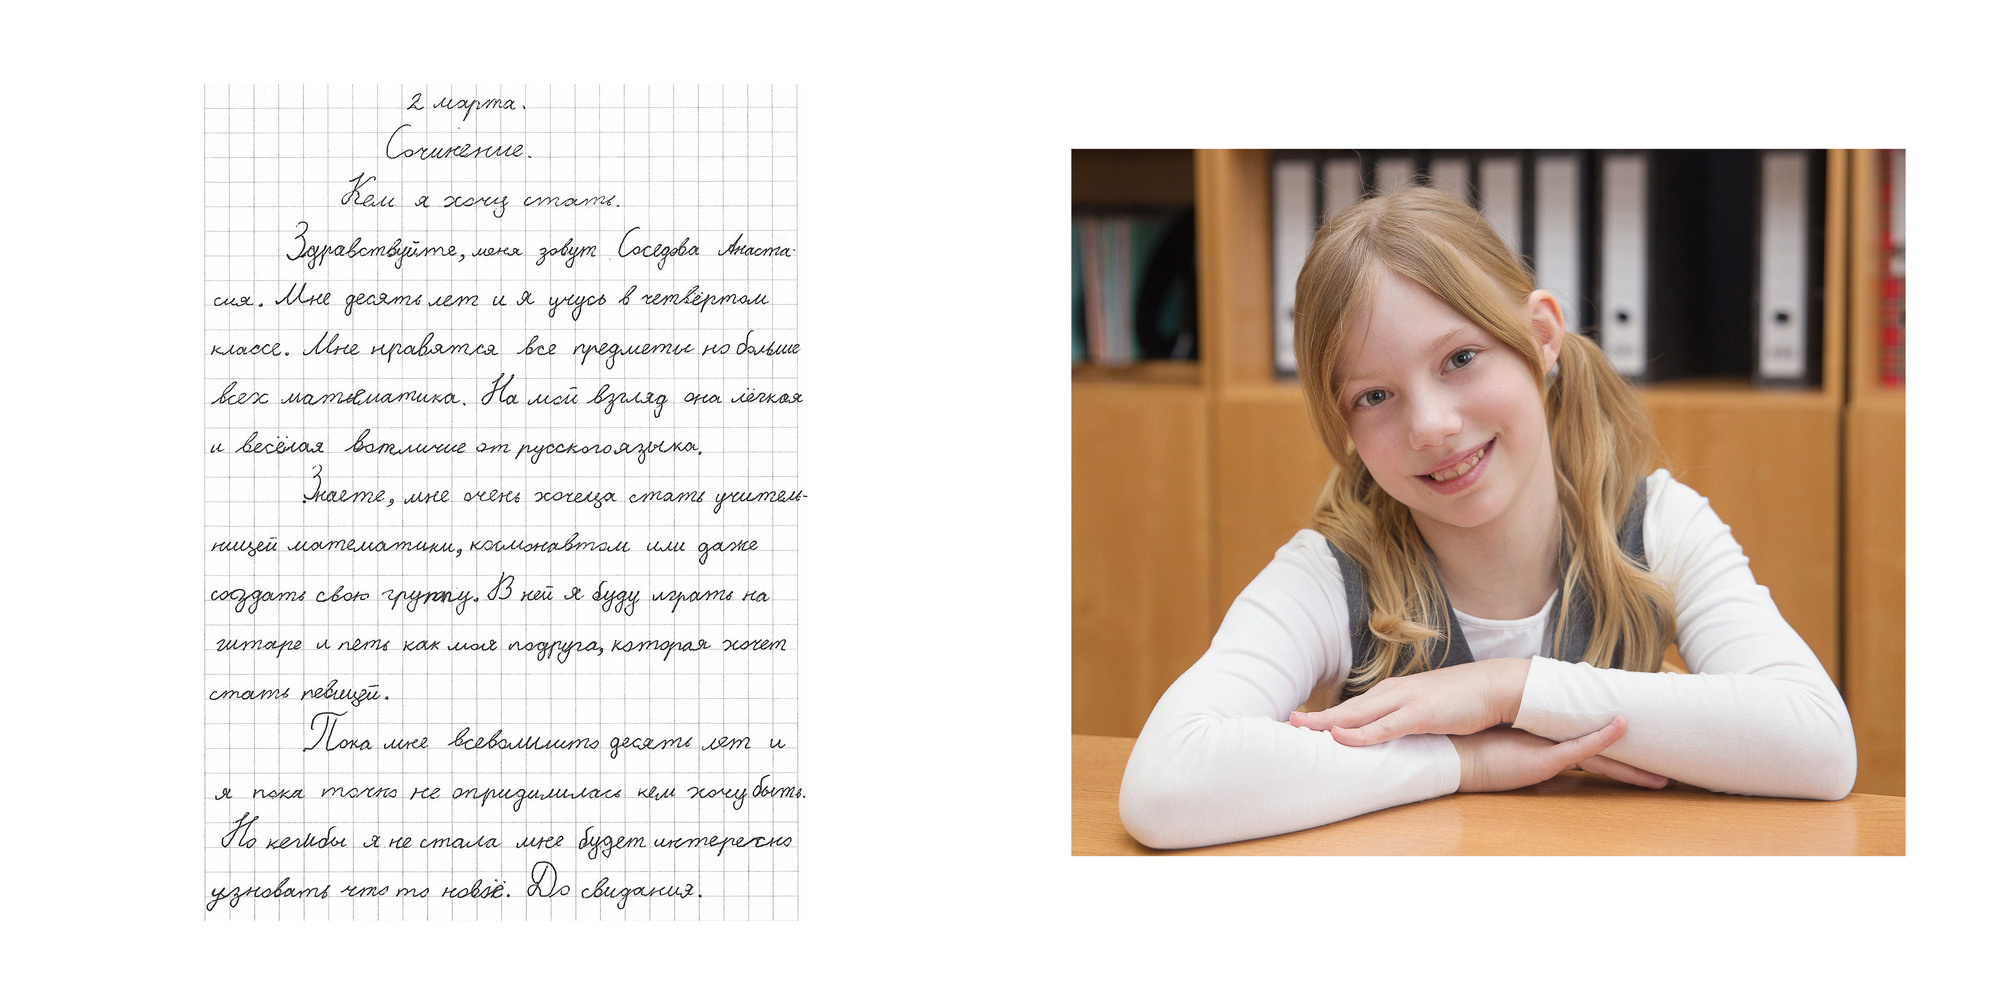 2 марта.
Сочинение.
Кем я хочу стать.
Здравствуйте, меня зовут Соседова Анаста-
сия. Мне десять лет и я учусь в четвёртом
классе. Мне нравятся все предметы но больше
всех математика. На мой взгляд она лёгкая
и весёлая вотличие от русскогоязыка.
Знаете, мне очень хочеца стать учитель-
ницей математики, космонавтом или даже
создать свою группу. В ней я буду играть на
гитаре и петь как моя подруга, которая хочет
стать певицей.
Пока мне всеволишто десять лет и
я пока точно не опридилилась кем хочу быть.
Но кембы я не стала мне будет интересно
узновать что то новоё. До свидания.